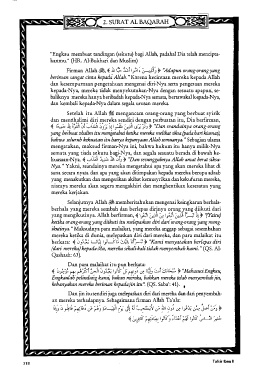 2. SURAT AL BAQARAH
"Engkau membuat tandingan (sekutu) bagi Allah, padahal Dia telah mencipta-
kanmu." (HR. Al-Bukhari dan Muslim)
Firman Allah ﷻ, ﴾ وَالَّذِينَ ءَامَنُوا أَشَدُّ حُبًّا لِّلَّهِ ﴿ "Adapun orang-orang yang
beriman sangat cinta kepada Allah." Karena kecintaan mereka kepada Allah
dan kesempurnaan pengetahuan mengenai diri-Nya serta pengesaan mereka
kepada-Nya, mereka tidak menyekutukan-Nya dengan sesuatu apapun, se-
baliknya mereka hanya beribadah kepada-Nya semata, bertawakkal kepada-Nya,
dan kembali kepada-Nya dalam segala urusan mereka.
Setelah itu Allah ﷻ mengancam orang-orang yang berbuat syirik
dan menzhalimi diri mereka sendiri dengan perbuatan itu, Dia berfirman,
"Dan seandainya orang-orang
yang berbuat zhalim itu mengetahui ketika mereka melihat siksa (pada hari kiamat),
bahwa seluruh kekuatan itu hanya kepunyaan Allah semuanya." Sebagian ulama
mengatakan, maksud firman-Nya ini, bahwa hukum itu hanya milik-Nya
semata yang tiada sekutu bagi-Nya, dan segala sesuatu berada di bawah ke-
kuasaan-Nya. "Dan sesungguhnya Allah amat berat siksa-
Nya." Yakni, seandainya mereka mengetahui apa yang akan mereka lihat di
sana secara nyata dan apa yang akan ditimpakan kepada mereka berupa adzab
yang menakutkan dan mengerikan akibat kemusyrikan dan kekufuran mereka,
niscaya mereka akan segera mengakhiri dan menghentikan kesesatan yang
mereka kerjakan.
Selanjutnya Allah ﷻ memberitahukan mengenai keingkaran berhala-
berhala yang mereka sembah dan berlepas dirinya orang yang diikuti dari
yang mengikutinya. Allah berfirman, ﴾ إِذْ تَبَرَّأَ الَّذِينَ اتُّبِعُوا مِنَ الَّذِينَ اتَّبَعُوا ﴿ "(Yaitu)
ketika orang-orang yang diikuti itu melepaskan diri dari orang-orang yang meng-
ikutinya." Maksudnya para malaikat, yang mereka anggap sebagai sesembahan
mereka ketika di dunia, melepaskan diri dari mereka, dan para malaikat itu
berkata: ﴾ تَبَرَّأْنَا إِلَيْكَ مَا كَانُوا إِيَّانَا يَعْبُدُونَ ﴿ "Kami menyatakan berlepas diri
(dari mereka) kepada-Mu, mereka sekali-kali tidak menyembah kami." (QS. Al-
Qashash: 63).
Dan para malaikat itu pun berkata:
"Mahasuci Engkau,
Engkaulah pelindung kami, bukan mereka, bahkan mereka telah menyembah jin,
kebanyakan mereka beriman kepada jin itu". (QS. Saba': 41).
Dan jin itu sendiri juga melepaskan diri dari mereka dan dari penyembah-
an mereka terhadapnya. Sebagaimana firman Allah Ta'ala: